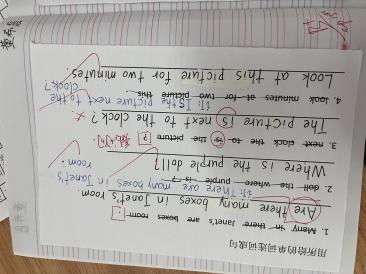 用所给的单词连词成句
1. Many in there Janet's are boxes room [.]
Are there many boxes in Janet's room.
订: There are many boxes in Janet's
room.
2. doll the where purple is ?
Where is the purple doll?
3. next clock the to is the picture [?]
The picture is next to the clock?
订: Is the picture next to the
clock?
4. look minutes at for two picture this.
Look at this picture for two minutes.